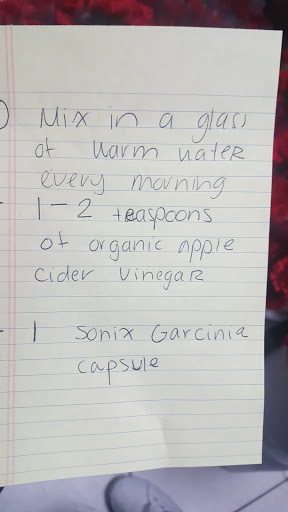 Mix in a glass
of warm water
every morning
- 1-2 teaspoons
of organic apple
cider vinegar
- 1 Sonix Garcinia
capsule